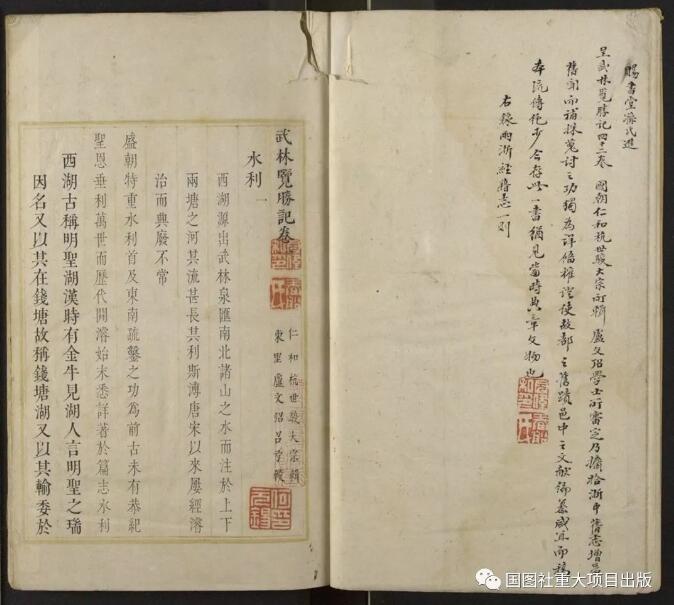 賜書堂孫氏進
呈武林覽勝記四十二卷 國朝仁和杭世駿大宗所輯 盧文弨學士所審定乃攟拾浙中舊志增
舊聞而補採蒐討之功獨為詳備
本流傳絕少今存此一書猶見當時典章文物也
右錄兩浙經籍志一則
武林覽勝記卷一
仁和杭世駿大宗輯
東里盧文弨召弓校
水利
西湖源出武林泉匯南北諸山之水而注於上下
兩塘之河其流甚長其利斯溥唐宋以來屢經濬
治而興廢不常
盛朝特重水利首及東南疏鑿之功為前古未有恭紀
聖恩垂利萬世而歷代開濬始末悉詳著於篇志水利
西湖古稱明聖湖漢時有金牛見湖人言明聖之瑞
因名又以其在錢塘故稱錢塘湖又以其輸委於
国图社重大项目出版